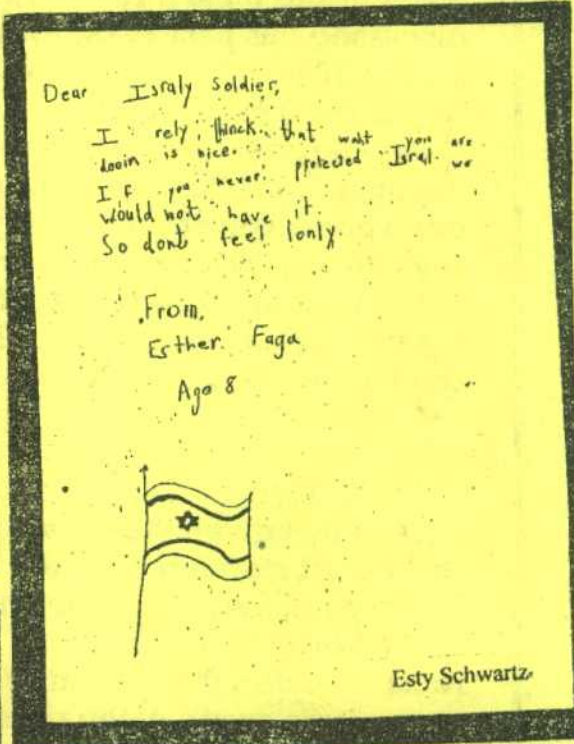 Dear Israly Soldier,
I rely thinck that waht you are
dooin is nice.
If you never protected Isral we
would not have it
So dont feel lonly.
From,
Esther Faga
Age 8
Esty Schwartz